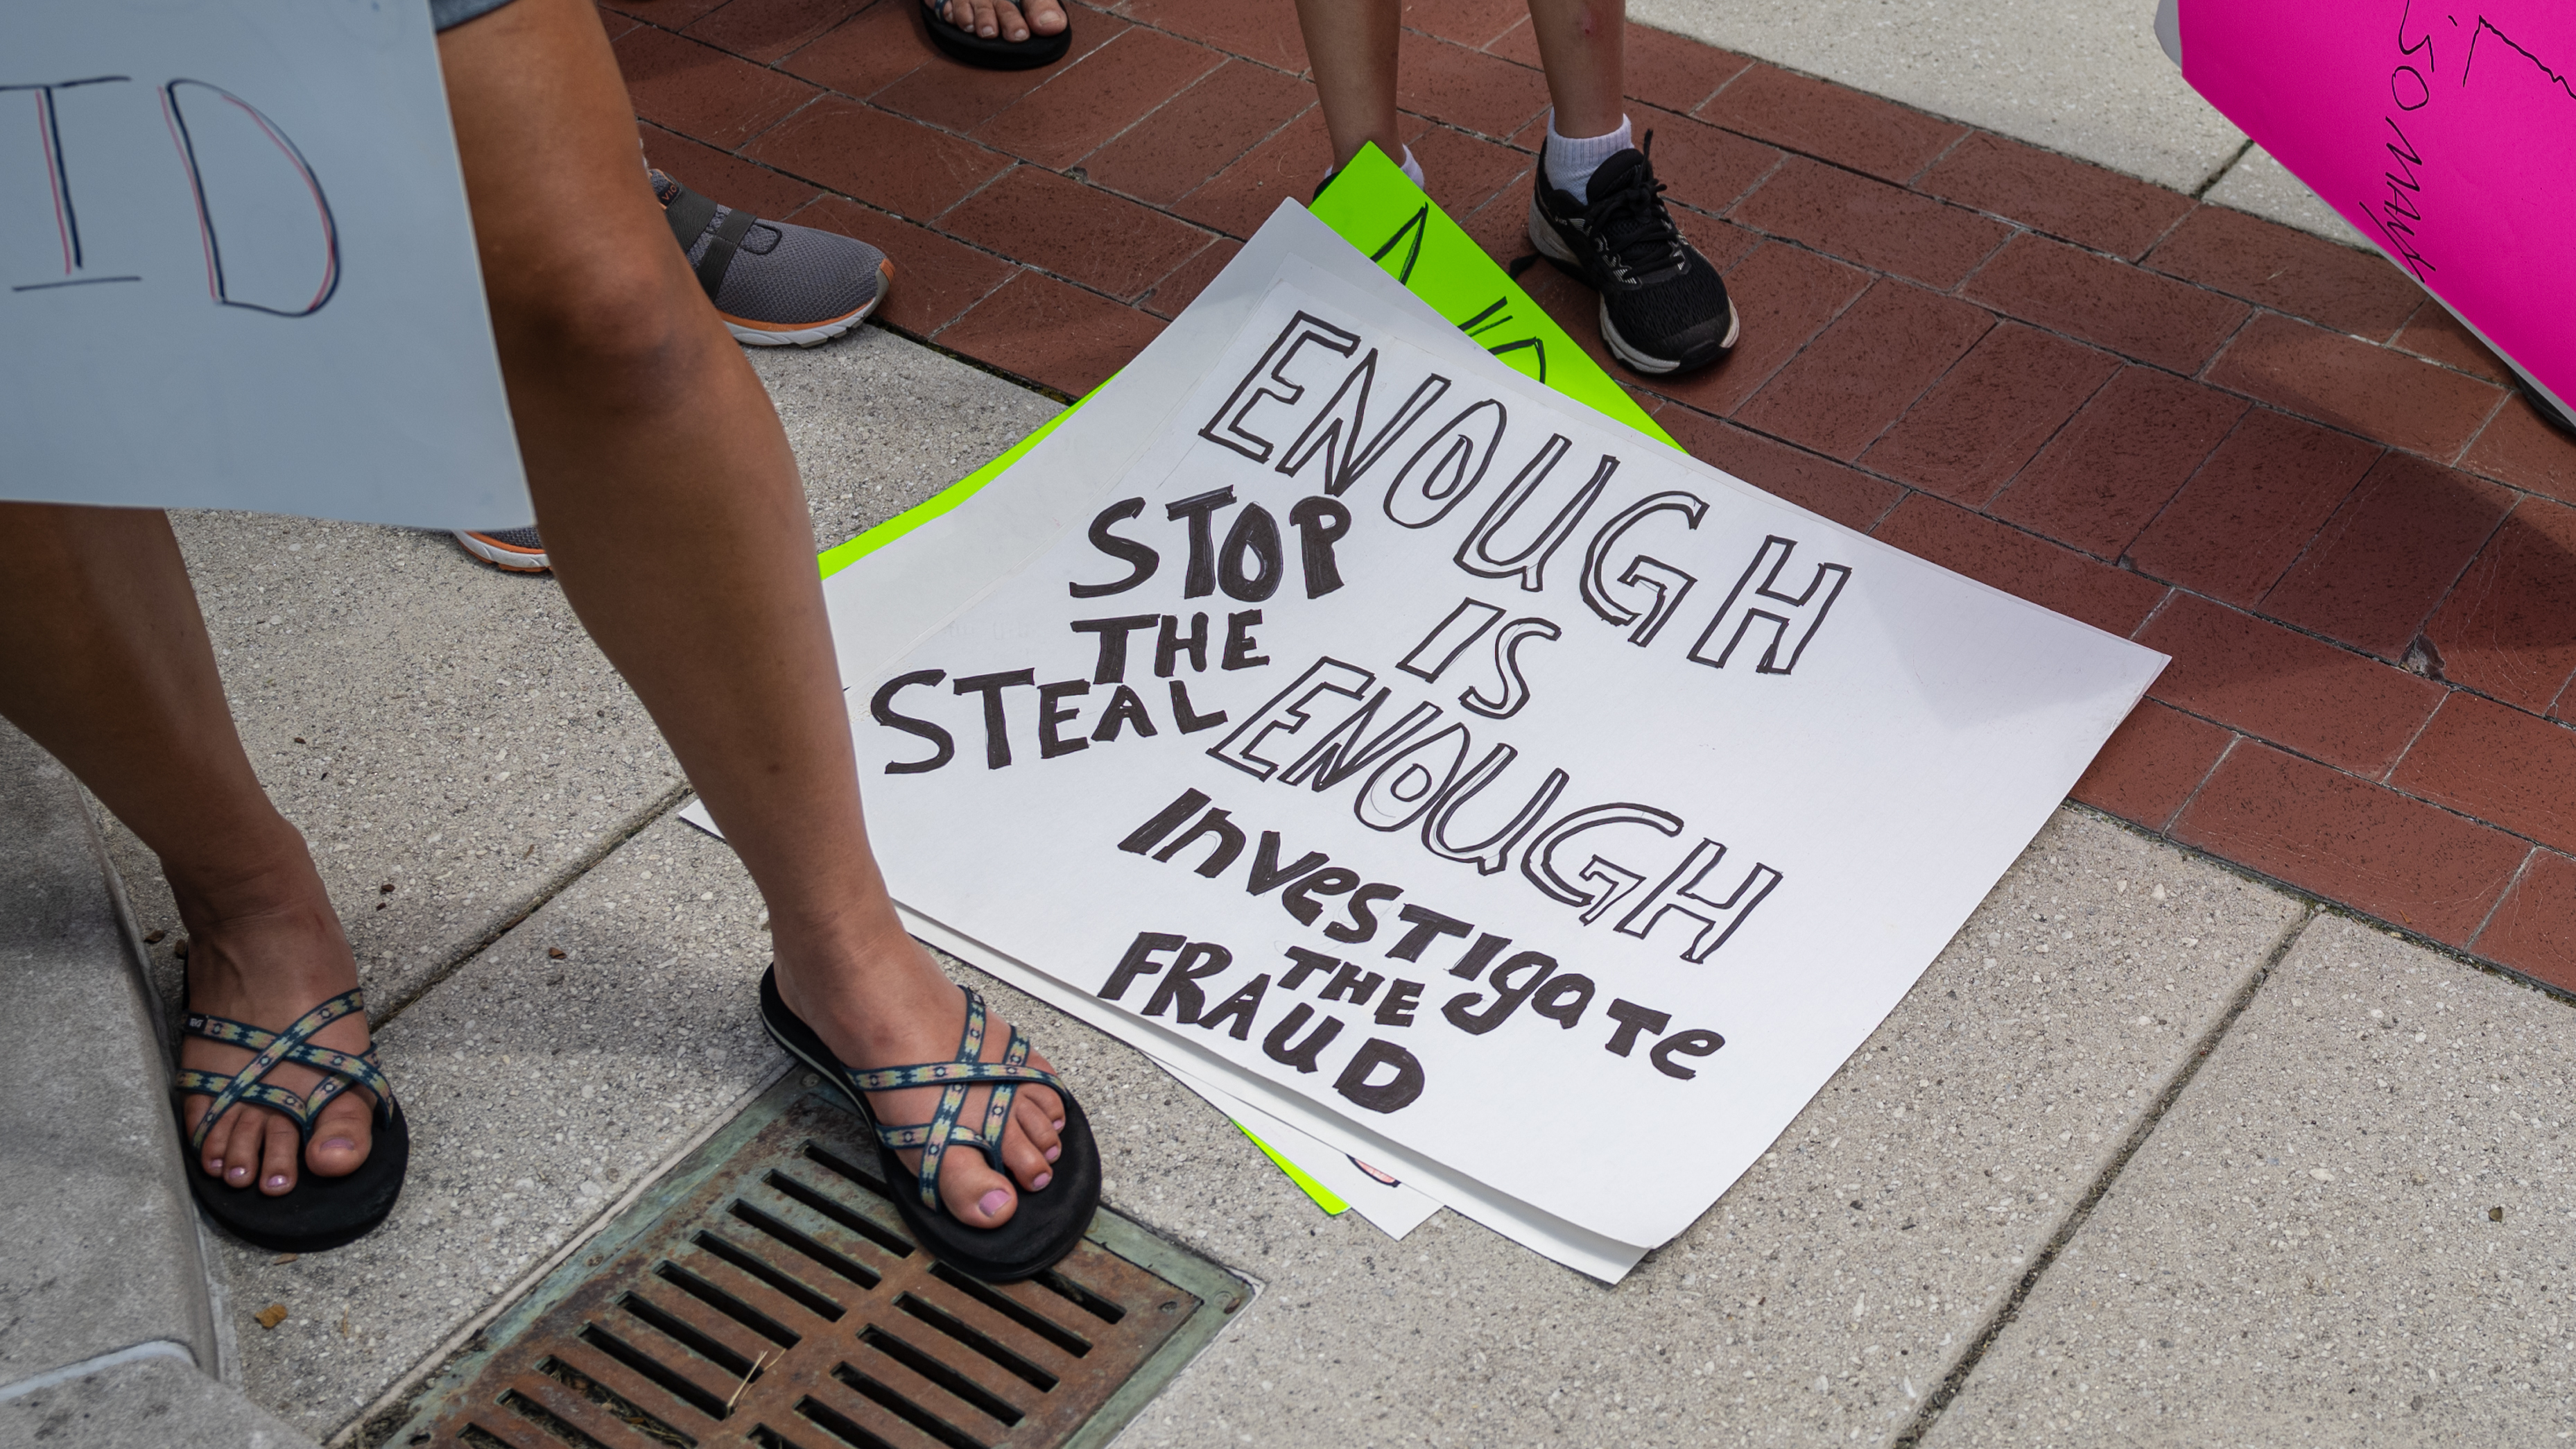 ID
ENOUGH
IS
ENOUGH
STOP
THE
STEAL
Investigate
THE
FRAUD
NO
SO MANY